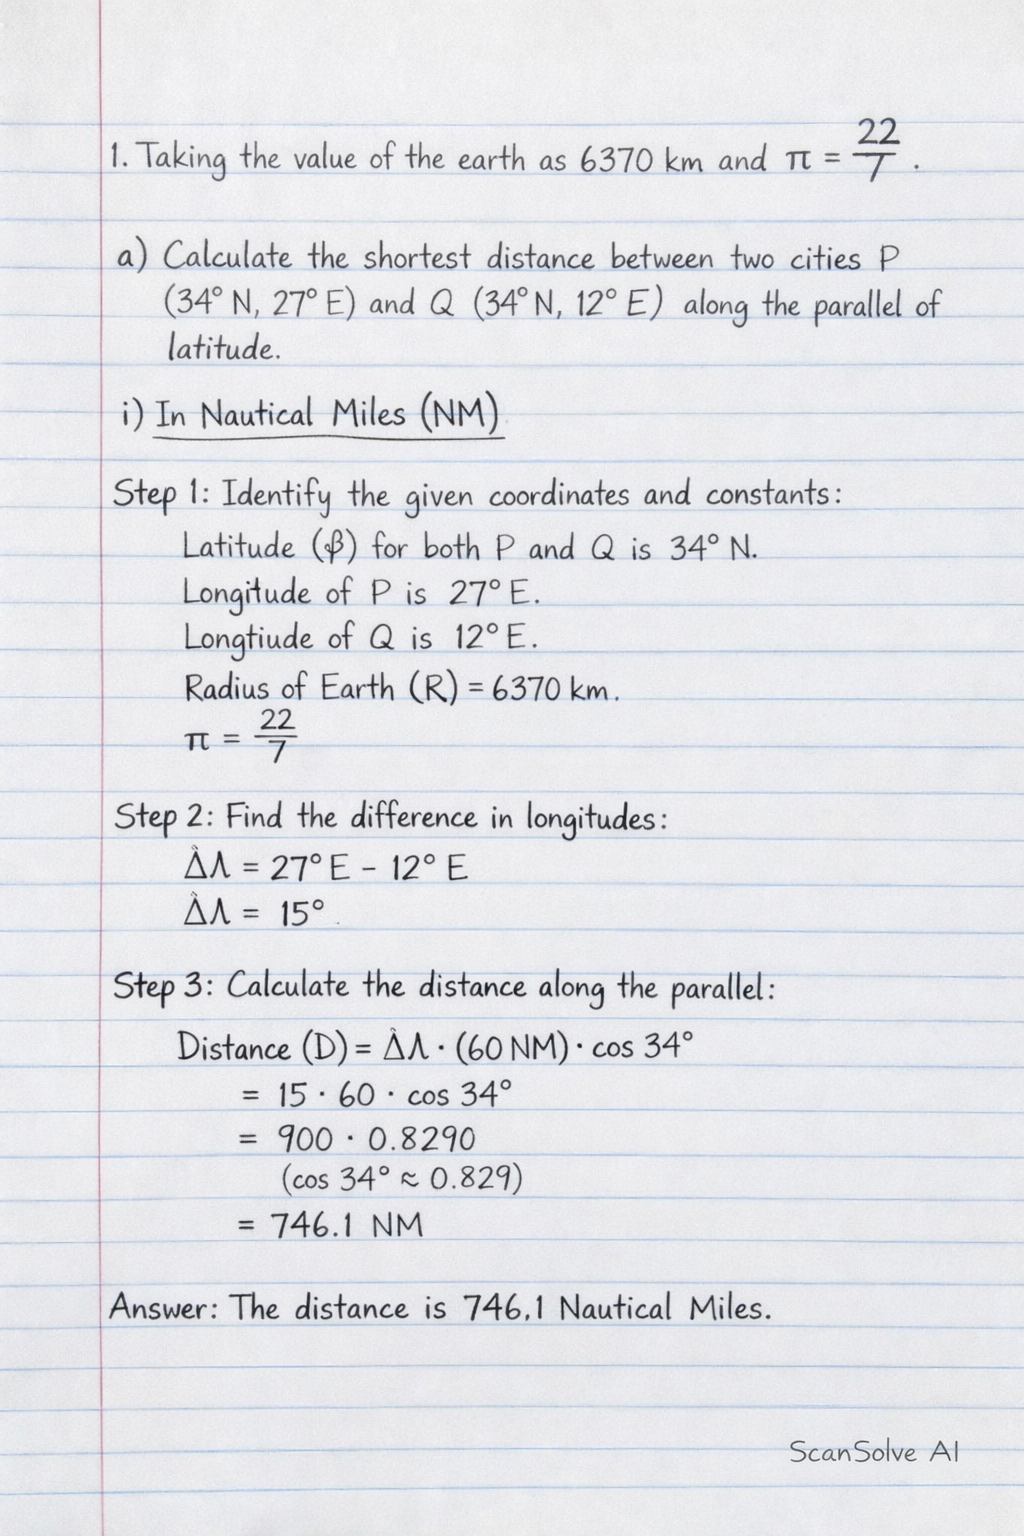 1. Taking the value of the earth as 6370 km and π = 22/7 .
a) Calculate the shortest distance between two cities P
(34° N, 27° E) and Q (34° N, 12° E) along the parallel of
latitude.
i) In Nautical Miles (NM)
Step 1: Identify the given coordinates and constants:
Latitude (β) for both P and Q is 34° N.
Longitude of P is 27° E.
Longtiude of Q is 12° E.
Radius of Earth (R) = 6370 km.
π = 22/7
Step 2: Find the difference in longitudes:
ΔΛ = 27° E - 12° E
ΔΛ = 15°
Step 3: Calculate the distance along the parallel:
Distance (D) = ΔΛ · (60 NM) · cos 34°
= 15 · 60 · cos 34°
= 900 · 0.8290
(cos 34° ≈ 0.829)
= 746.1 NM
Answer: The distance is 746.1 Nautical Miles.
ScanSolve AI